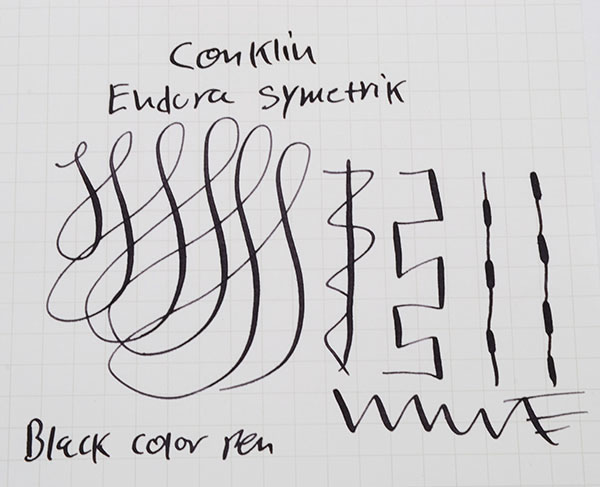 Conklin
Endura symetrik
Black color pen